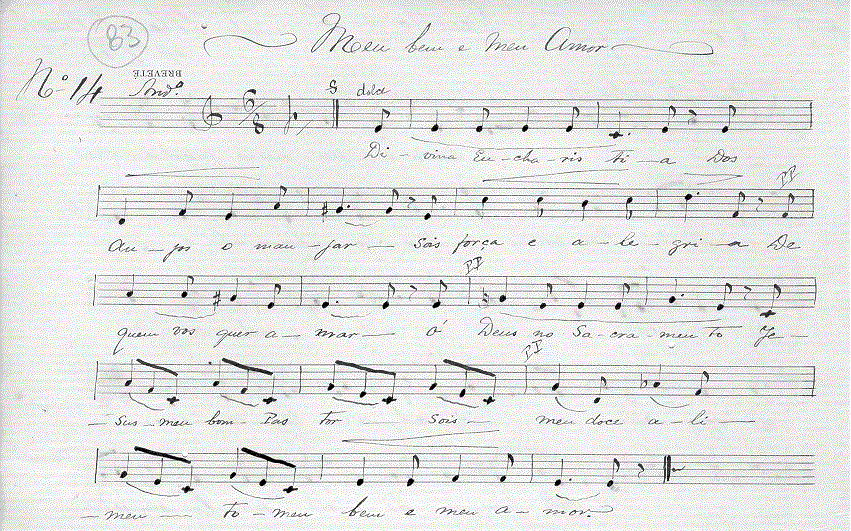 83
Meu bem e meu Amor
Nº 14
BREVETÉ
Andº
dolce
6/8
Di - vina Eu - cha - ris - ti - a Dos
PP
An - jos o man - jar - Sois força e a - le - gri - a De
PP
quem vos quer a - mar - Ó Deus no Sa - cra - men to Je -
PP
- sus - meu bom - Pas tor - Sois - meu doce a - li -
- men - to - meu bem e meu a - mor.